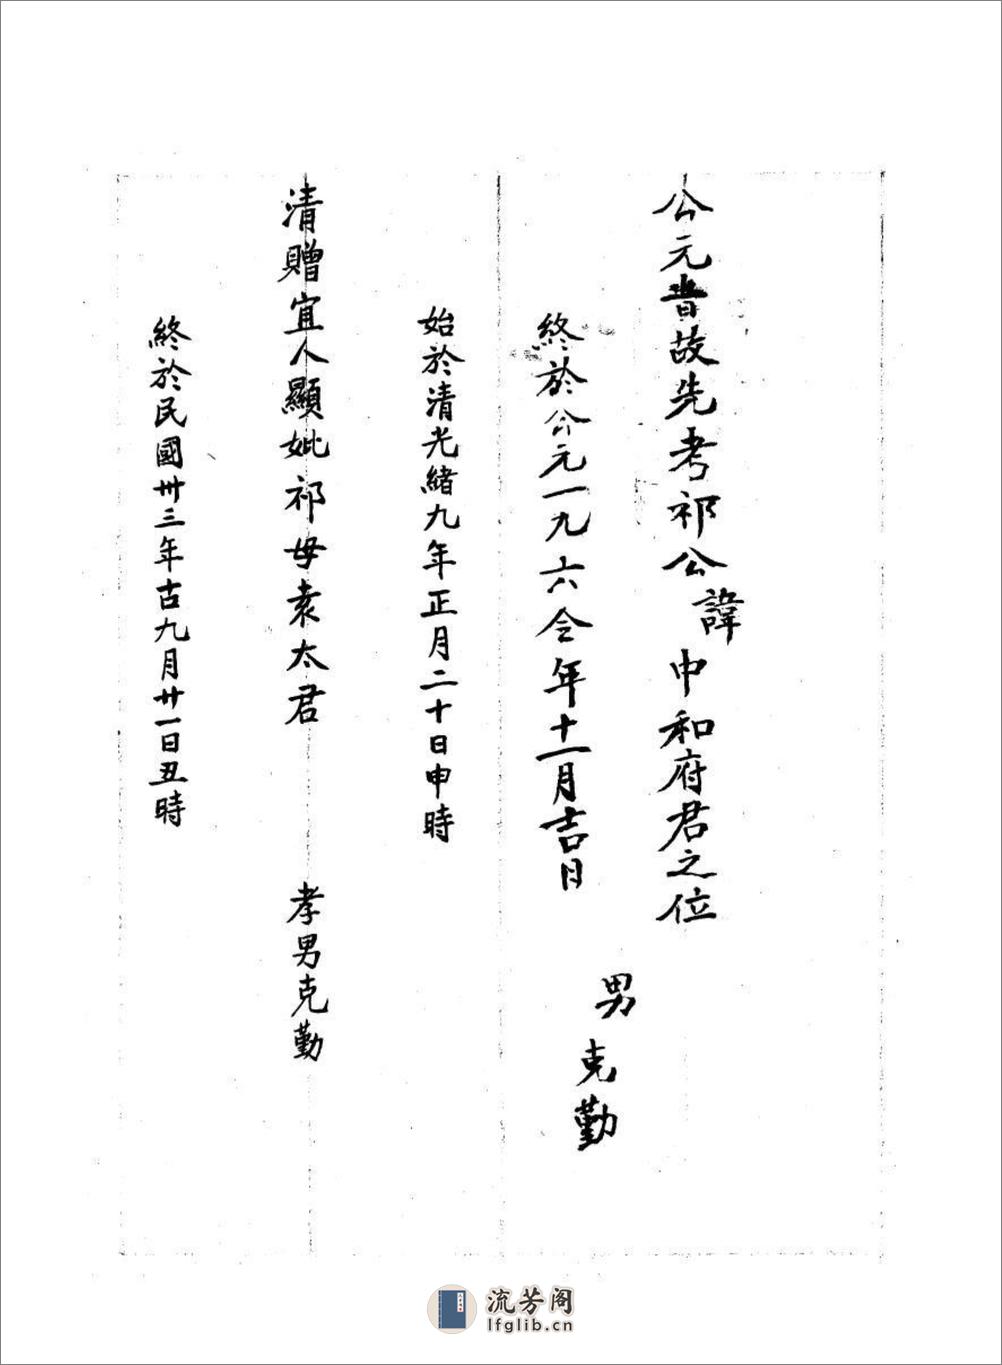 公元昔故先考祁公諱中和府君之位
終於公元一九六令年十一月吉日
男克勤
始於清光緒九年正月二十日申時
清贈宜人顯妣祁母袁太君
孝男克勤
終於民國卅三年古九月廿一日丑時
流芳阁
lfglib.cn